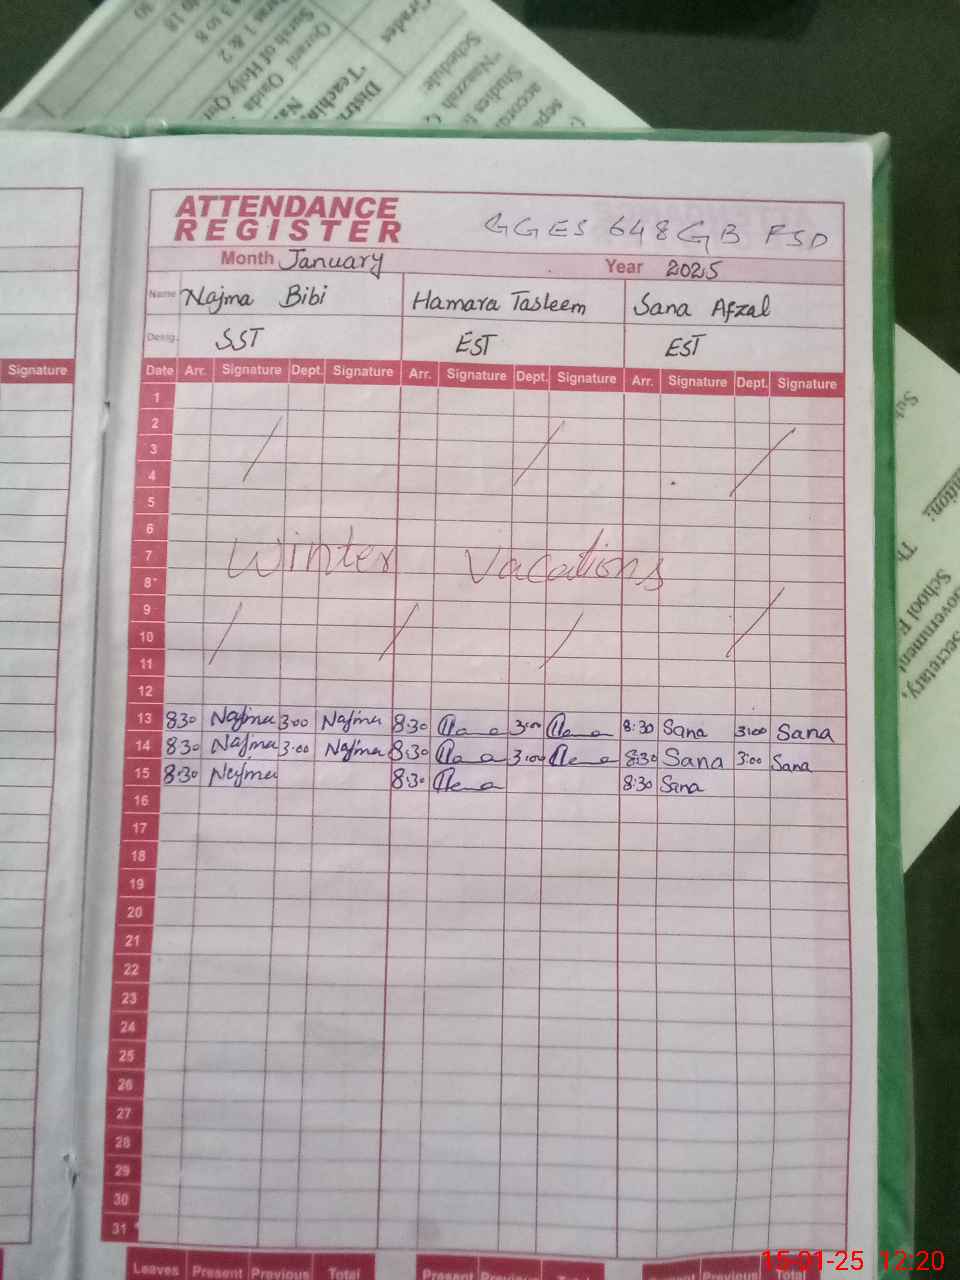 Grades
3 to 8
1 & 2
Surah of Holy
Qaida
Qurani
"Teaching
Distri
Schedule
"Nazrah
Studies
accord
Signature
ATTENDANCE
REGISTER
GGES 648 GB FSD
Month January Year 2025
Name Najma Bibi Hamara Tasleem Sana Afzal
Desig. SST EST EST
Date Arr. Signature Dept. Signature Arr. Signature Dept. Signature Arr. Signature Dept. Signature
1
2
3
4
5
6
7 Winter Vacations
8
9
10
11
12
13 8:30 Najma 3:00 Najma 8:30 3:00 8:30 Sana 3:00 Sana
14 8:30 Najma 3:00 Najma 8:30 3:00 8:30 Sana 3:00 Sana
15 8:30 Najma 8:30 8:30 Sana
16
17
18
19
20
21
22
23
24
25
26
27
28
29
30
31
Leaves Present Previous Total Present Previous Total Present Previous Total
School
Government
Secretary,
15-01-25 12:20